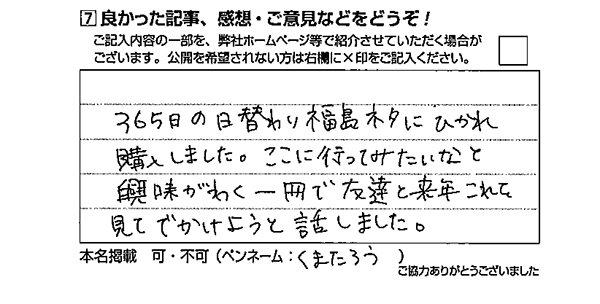 7 良かった記事、感想・ご意見などをどうぞ！
ご記入内容の一部を、弊社ホームページ等で紹介させていただく場合が
ございます。公開を希望されない方は右欄に×印をご記入ください。
365日の日替わり福島ネタにひかれ
購入しました。ここに行ってみたいなと
興味がわく一冊で友達と来年これを
見てでかけようと話しました。
本名掲載 可・不可（ペンネーム：くまたろう ）
ご協力ありがとうございました